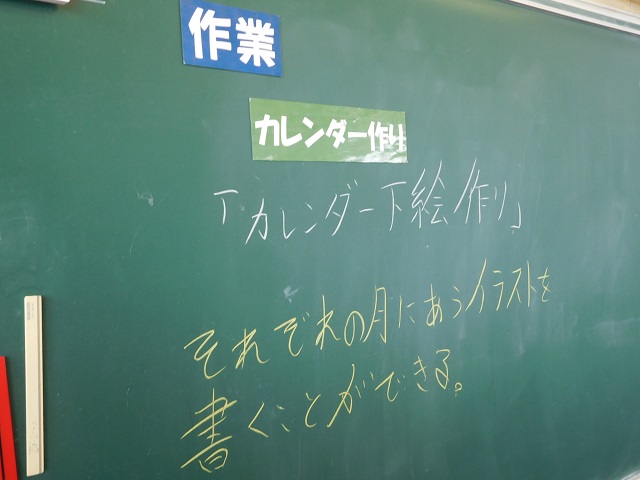 作業
カレンダー作り
「カレンダー下絵作り」
それぞれの月にあうイラストを
書くことができる。